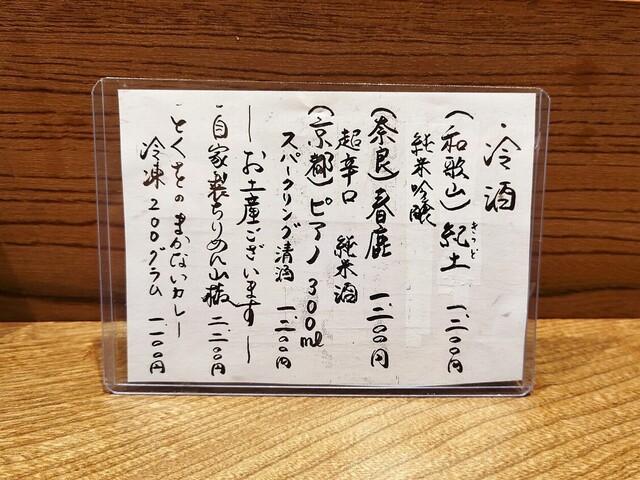 冷酒
(和歌山)紀土 一、二〇〇円
きっど
純米吟醸
(奈良)春鹿 一、二〇〇円
超辛口 純米酒
(京都)ピアノ 300ml
スパークリング清酒 一、二〇〇円
ーお土産ございますー
・自家製ちりめん山椒 二、二〇〇円
・とくをのまかないカレー
冷凍200グラム 一、一〇〇円